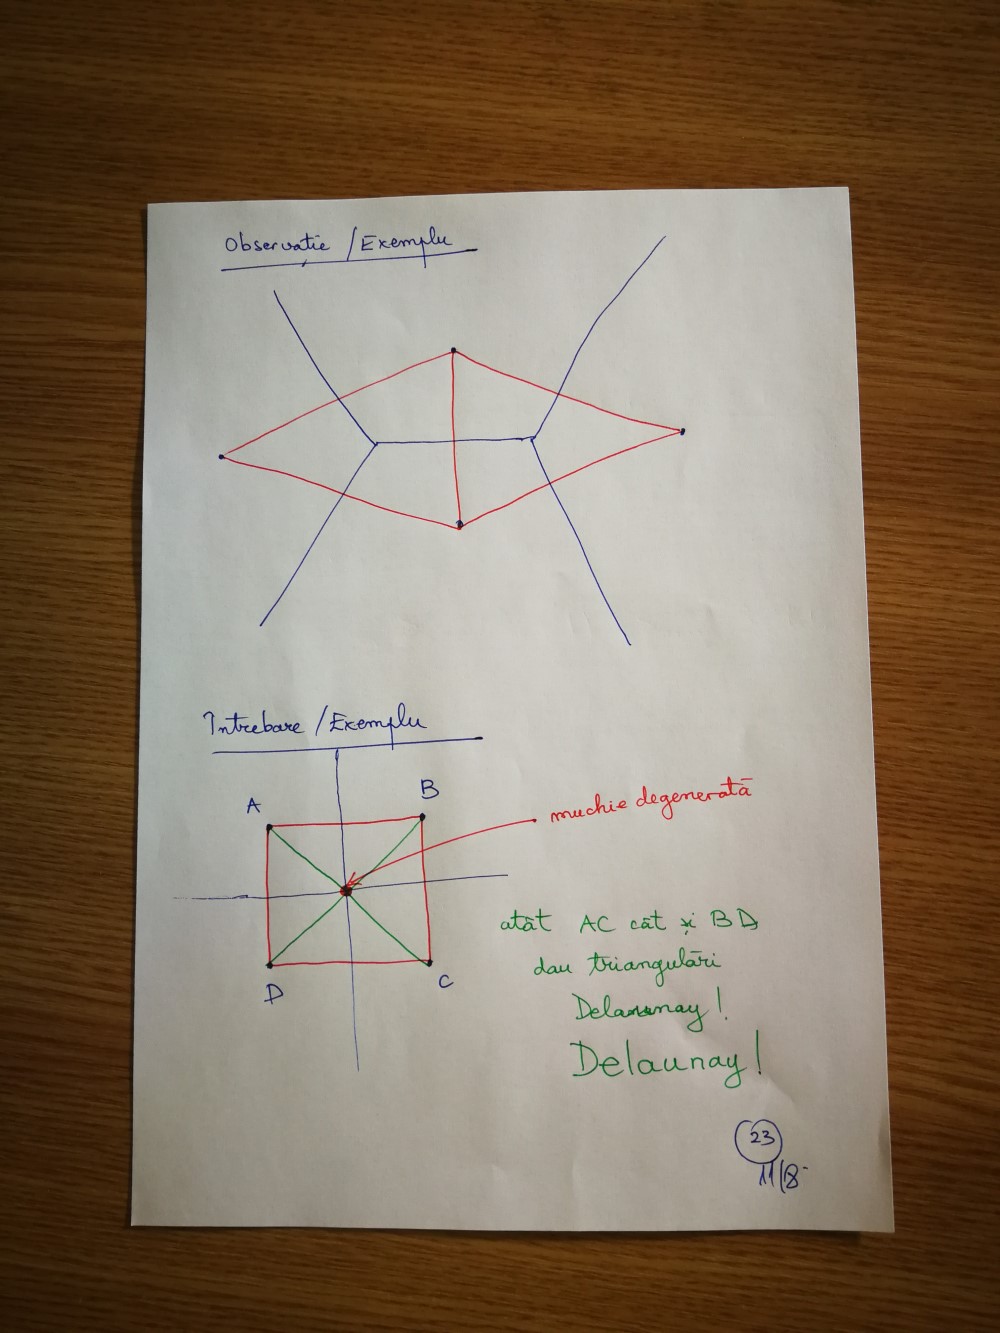 Observație / Exemplu
Întrebare / Exemplu
A
B
muchie degenerată
atât AC cât și BD
dau triangulări
Delaunay!
Delaunay!
D
C
23
11/18